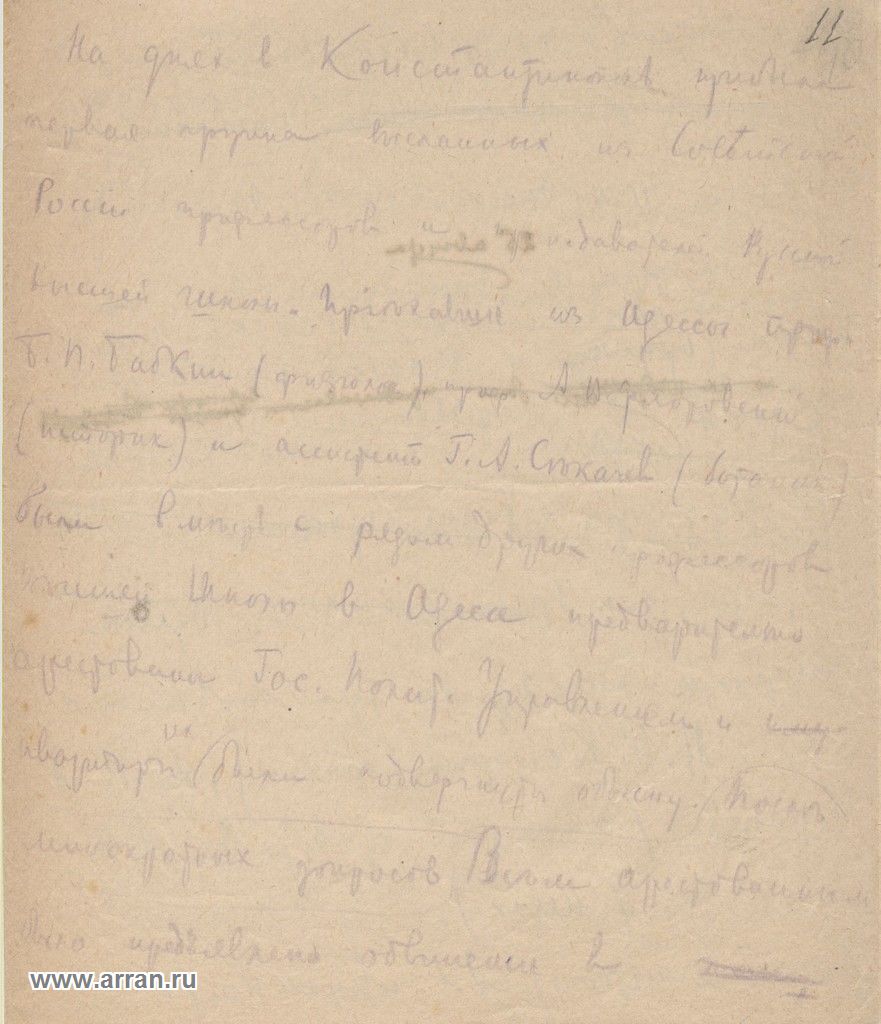 11
На днях в Константинополь прибыла
первая группа высланных из Совѣтской
России профессоров и преподавателей Русской
высшей школы. Приѣхавшие из Одессы проф.
Б. П. Бабкин (физиолог), проф. А.
(историк) и ассистент Г. А. Сѣкачев (ботаник)
были вмѣстѣ с рядом других профессоров
высшей Школы в Одессе предварительно
арестованы Гос. Полит. Управлением и
квартиры их были подвергнуты обыску. Послѣ
многократных допросов Всѣм арестованным
было предъявлено обвинение в
www.arran.ru